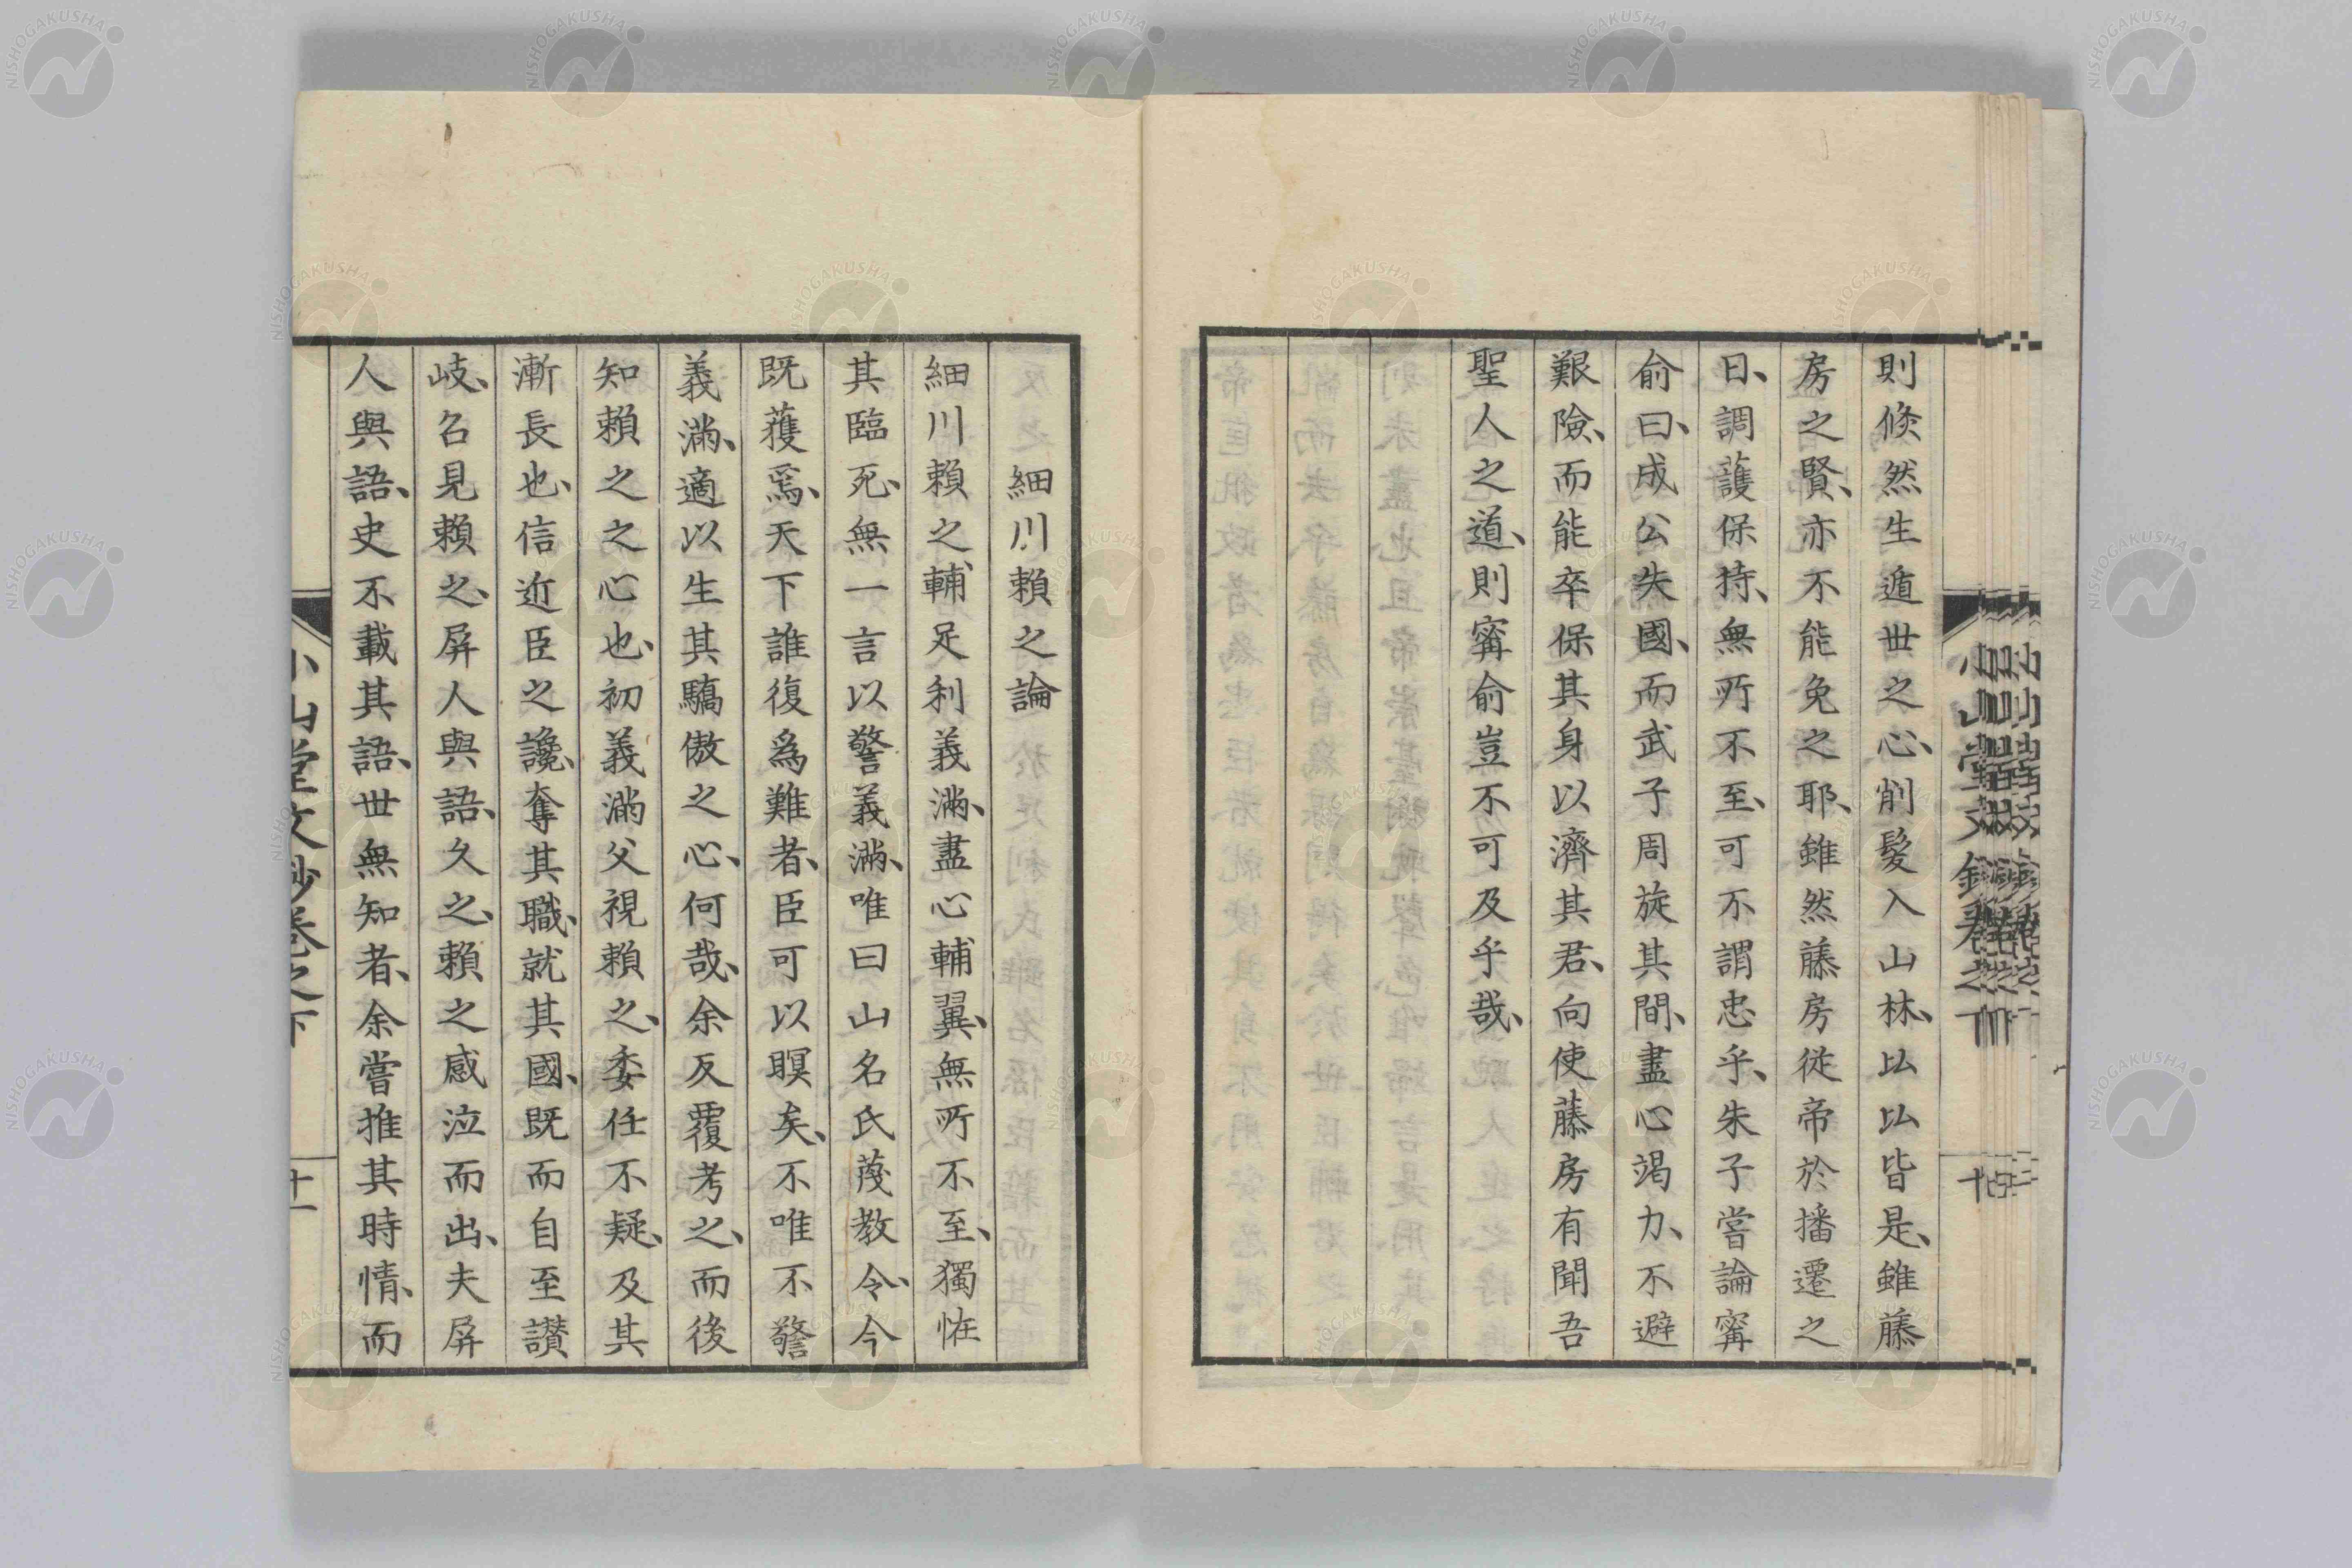 則倏然生遁世之心、削髮入山林、比比皆是、雖藤
房之賢、亦不能免之耶、雖然藤房從帝於播遷之
日、調護保持、無所不至、可不謂忠乎、朱子嘗論甯
俞曰、成公失國、而武子周旋其間、盡心竭力、不避
艱險、而能卒保其身以濟其君、向使藤房有聞吾
聖人之道、則甯俞豈不可及乎哉、
細川賴之論
細川賴之輔足利義滿、盡心輔翼、無所不至、獨恠
其臨死、無一言以警義滿、唯曰山名氏蔑教令、今
既獲焉、天下誰復爲難者、臣可以瞑矣、不唯不警
義滿、適以生其驕傲之心、何哉、余反覆考之、而後
知賴之之心也、初義滿父視賴之、委任不疑、及其
漸長也、信近臣之讒、奪其職、就其國、既而自至讃
岐、召見賴之、屏人與語、久之、賴之感泣而出、夫屏
人與語、史不載其語、世無知者、余嘗推其時情、而
小山堂文鈔卷之下
十一
NISHOGAKUSHA